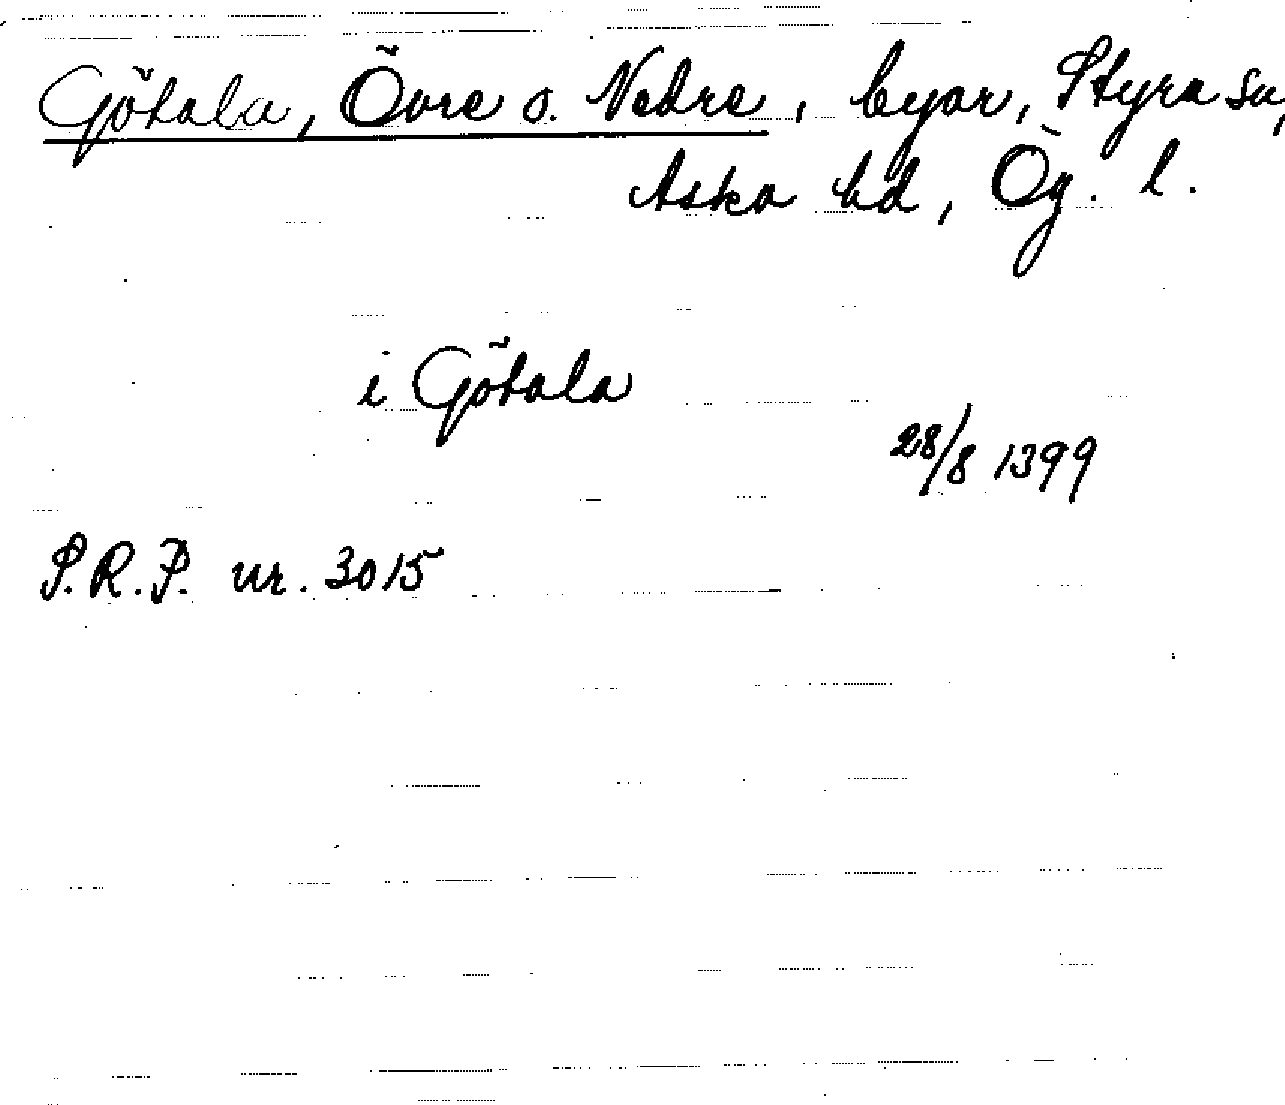 Götala, Övre o. Nedre, byar, Styra sn,
Aska hd, Ög. l.
i Götala
28/8 1399
S.R.P. nr. 3015